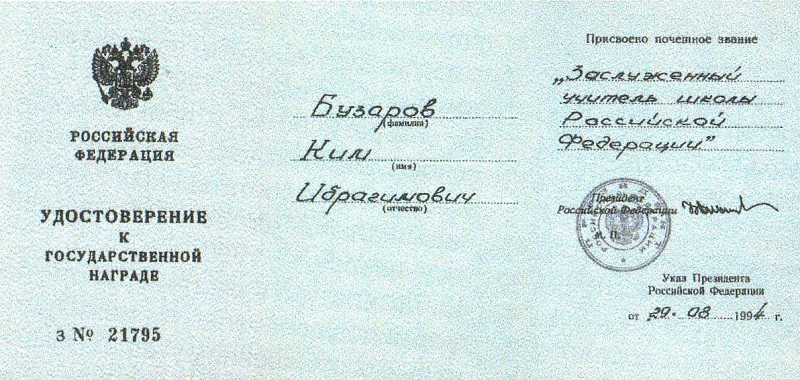 РОССИЙСКАЯ
ФЕДЕРАЦИЯ
УДОСТОВЕРЕНИЕ
К
ГОСУДАРСТВЕННОЙ
НАГРАДЕ
З № 21795
Бузаров
(фамилия)
Ким
(имя)
Ибрагимович
(отчество)
Присвоено почетное звание
„Заслуженный
учитель школы
Российской
Федерации”
Президент
Российской Федерации
М. П.
Указ Президента
Российской Федерации
от 29. 08 1994 г.